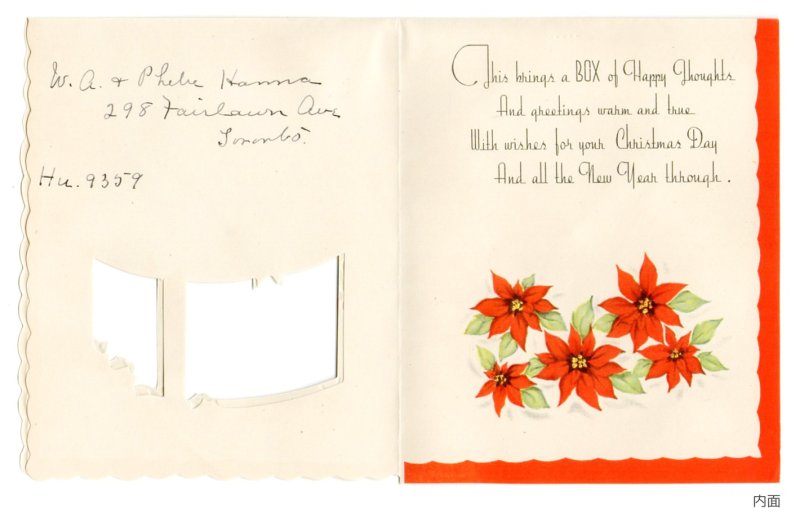 W. A. & Phebe Hanna
298 Fairlawn Ave
Toronto.
Hu. 9359
This brings a BOX of Happy Thoughts
And greetings warm and true
With wishes for your Christmas Day
And all the New Year through.
内面